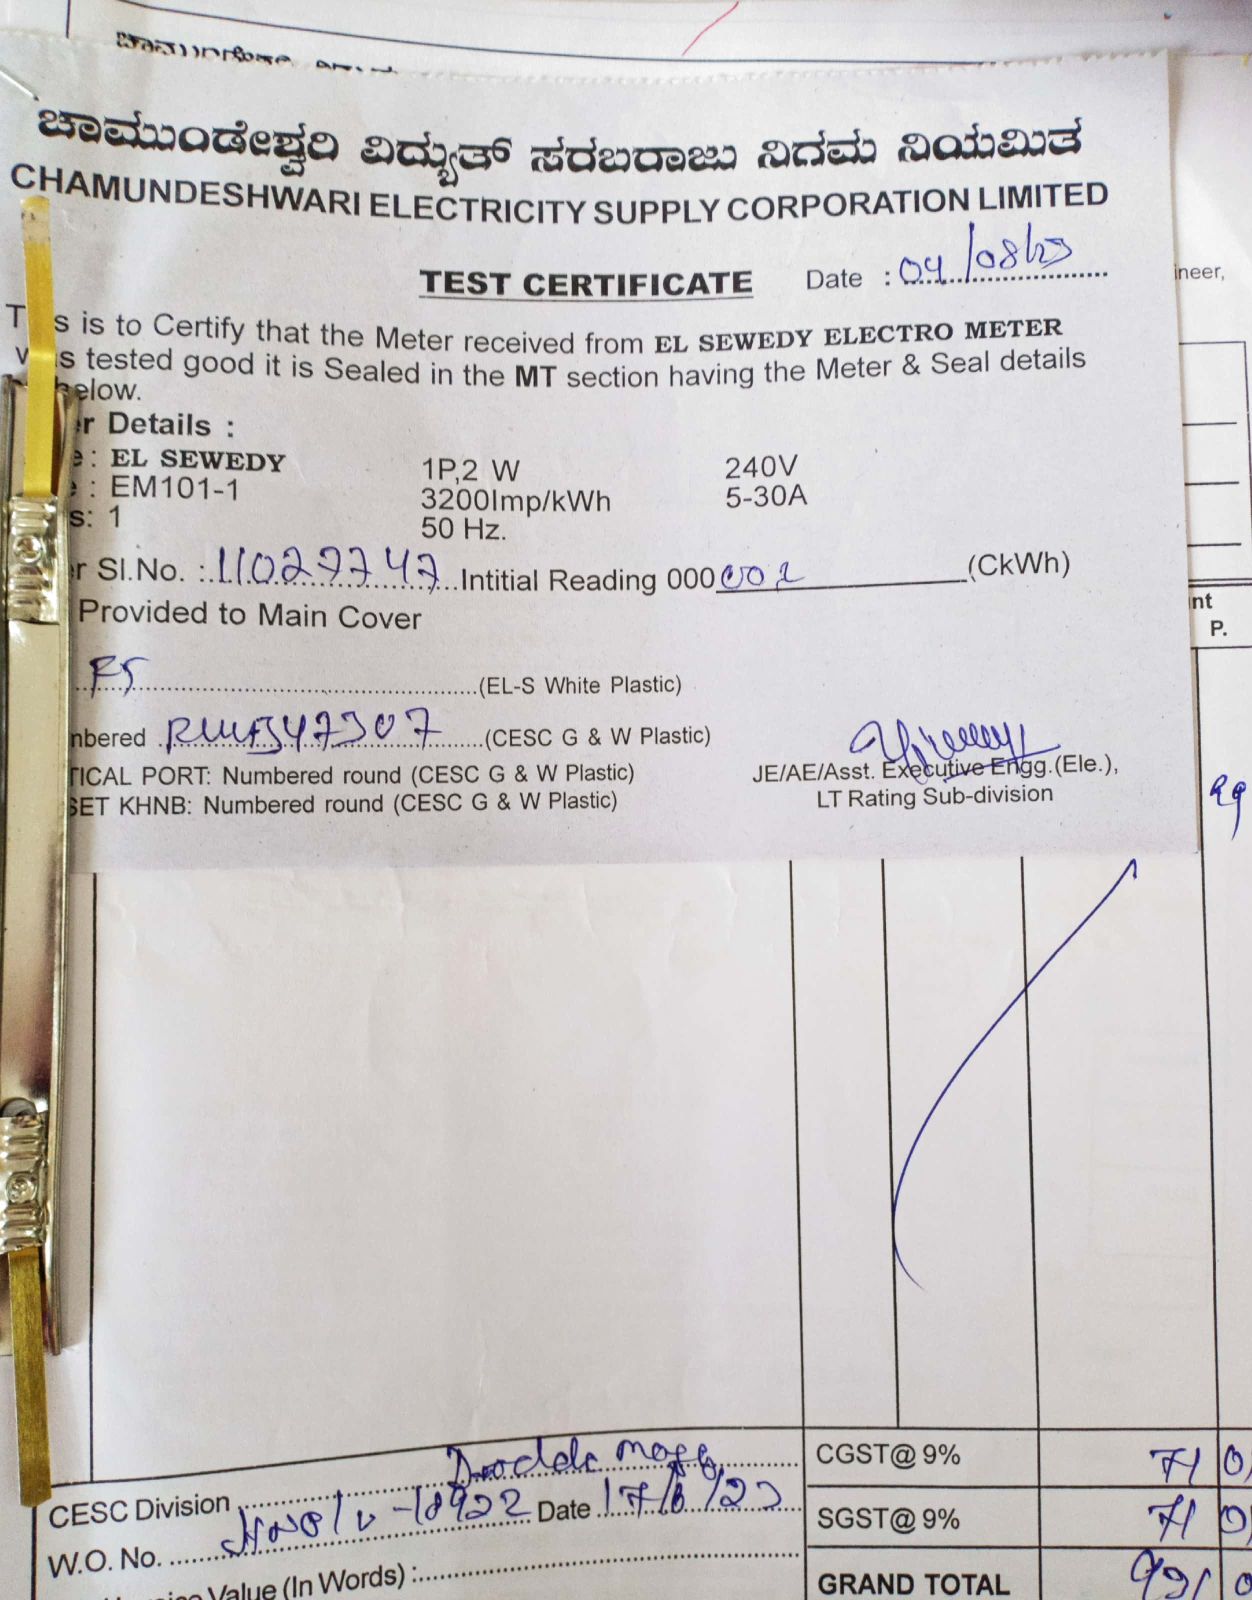 ಚಾಮುಂಡೇಶ್ವರಿ ವಿದ್ಯುತ್ ಸರಬರಾಜು ನಿಗಮ ನಿಯಮಿತ
CHAMUNDESHWARI ELECTRICITY SUPPLY CORPORATION LIMITED
TEST CERTIFICATE Date : 04/08/23
ineer,
s is to Certify that the Meter received from EL SEWEDY ELECTRO METER
s tested good it is Sealed in the MT section having the Meter & Seal details
elow.
r Details :
: EL SEWEDY 1P,2 W 240V
: EM101-1 3200Imp/kWh 5-30A
s: 1 50 Hz.
r Sl.No. : 11027747 Intitial Reading 000002 (CkWh)
Provided to Main Cover
nt
P.
(EL-S White Plastic)
nbered (CESC G & W Plastic)
TICAL PORT: Numbered round (CESC G & W Plastic)
SET KHNB: Numbered round (CESC G & W Plastic)
JE/AE/Asst. Executive Engg.(Ele.),
LT Rating Sub-division
99
CGST@ 9% 71 0
CESC Division
SGST@ 9% 71 0
W.O. No. Date 17/6/23
Value (In Words) :
GRAND TOTAL 0